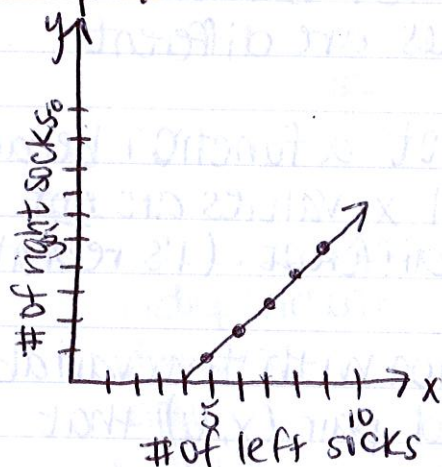 y
# of right socks
x
5
10
# of left socks